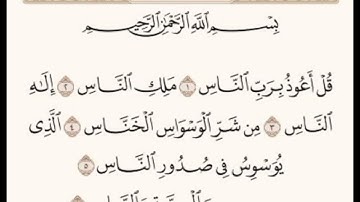 بِسْمِ اللَّهِ الرَّحْمَٰنِ الرَّحِيمِ
قُلْ أَعُوذُ بِرَبِّ النَّاسِ ١ مَلِكِ النَّاسِ ٢ إِلَٰهِ
النَّاسِ ٣ مِن شَرِّ الْوَسْوَاسِ الْخَنَّاسِ ٤ الَّذِي
يُوَسْوِسُ فِي صُدُورِ النَّاسِ ٥